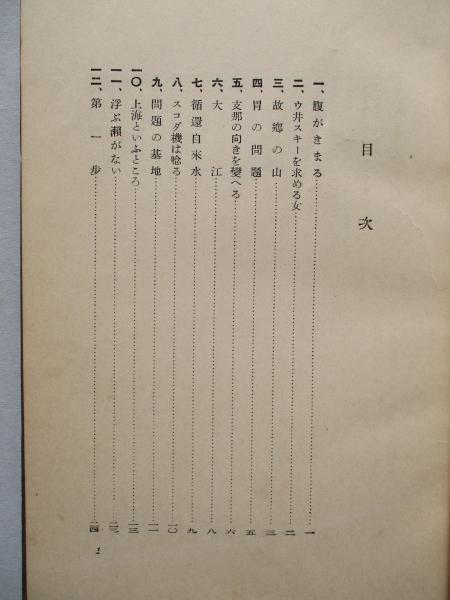 目次
一、腹がきまる……一
二、ウ井スキーを求める女……二
三、故鄕の山……三
四、胃の問題……五
五、支那の向きを變へる……六
六、大江……八
七、循還自來水……九
八、スコダ機は唸る……一〇
九、問題の基地……一一
一〇、上海といふところ……一三
一一、浮ぶ瀨がない……二三
一二、第一步……二四
1